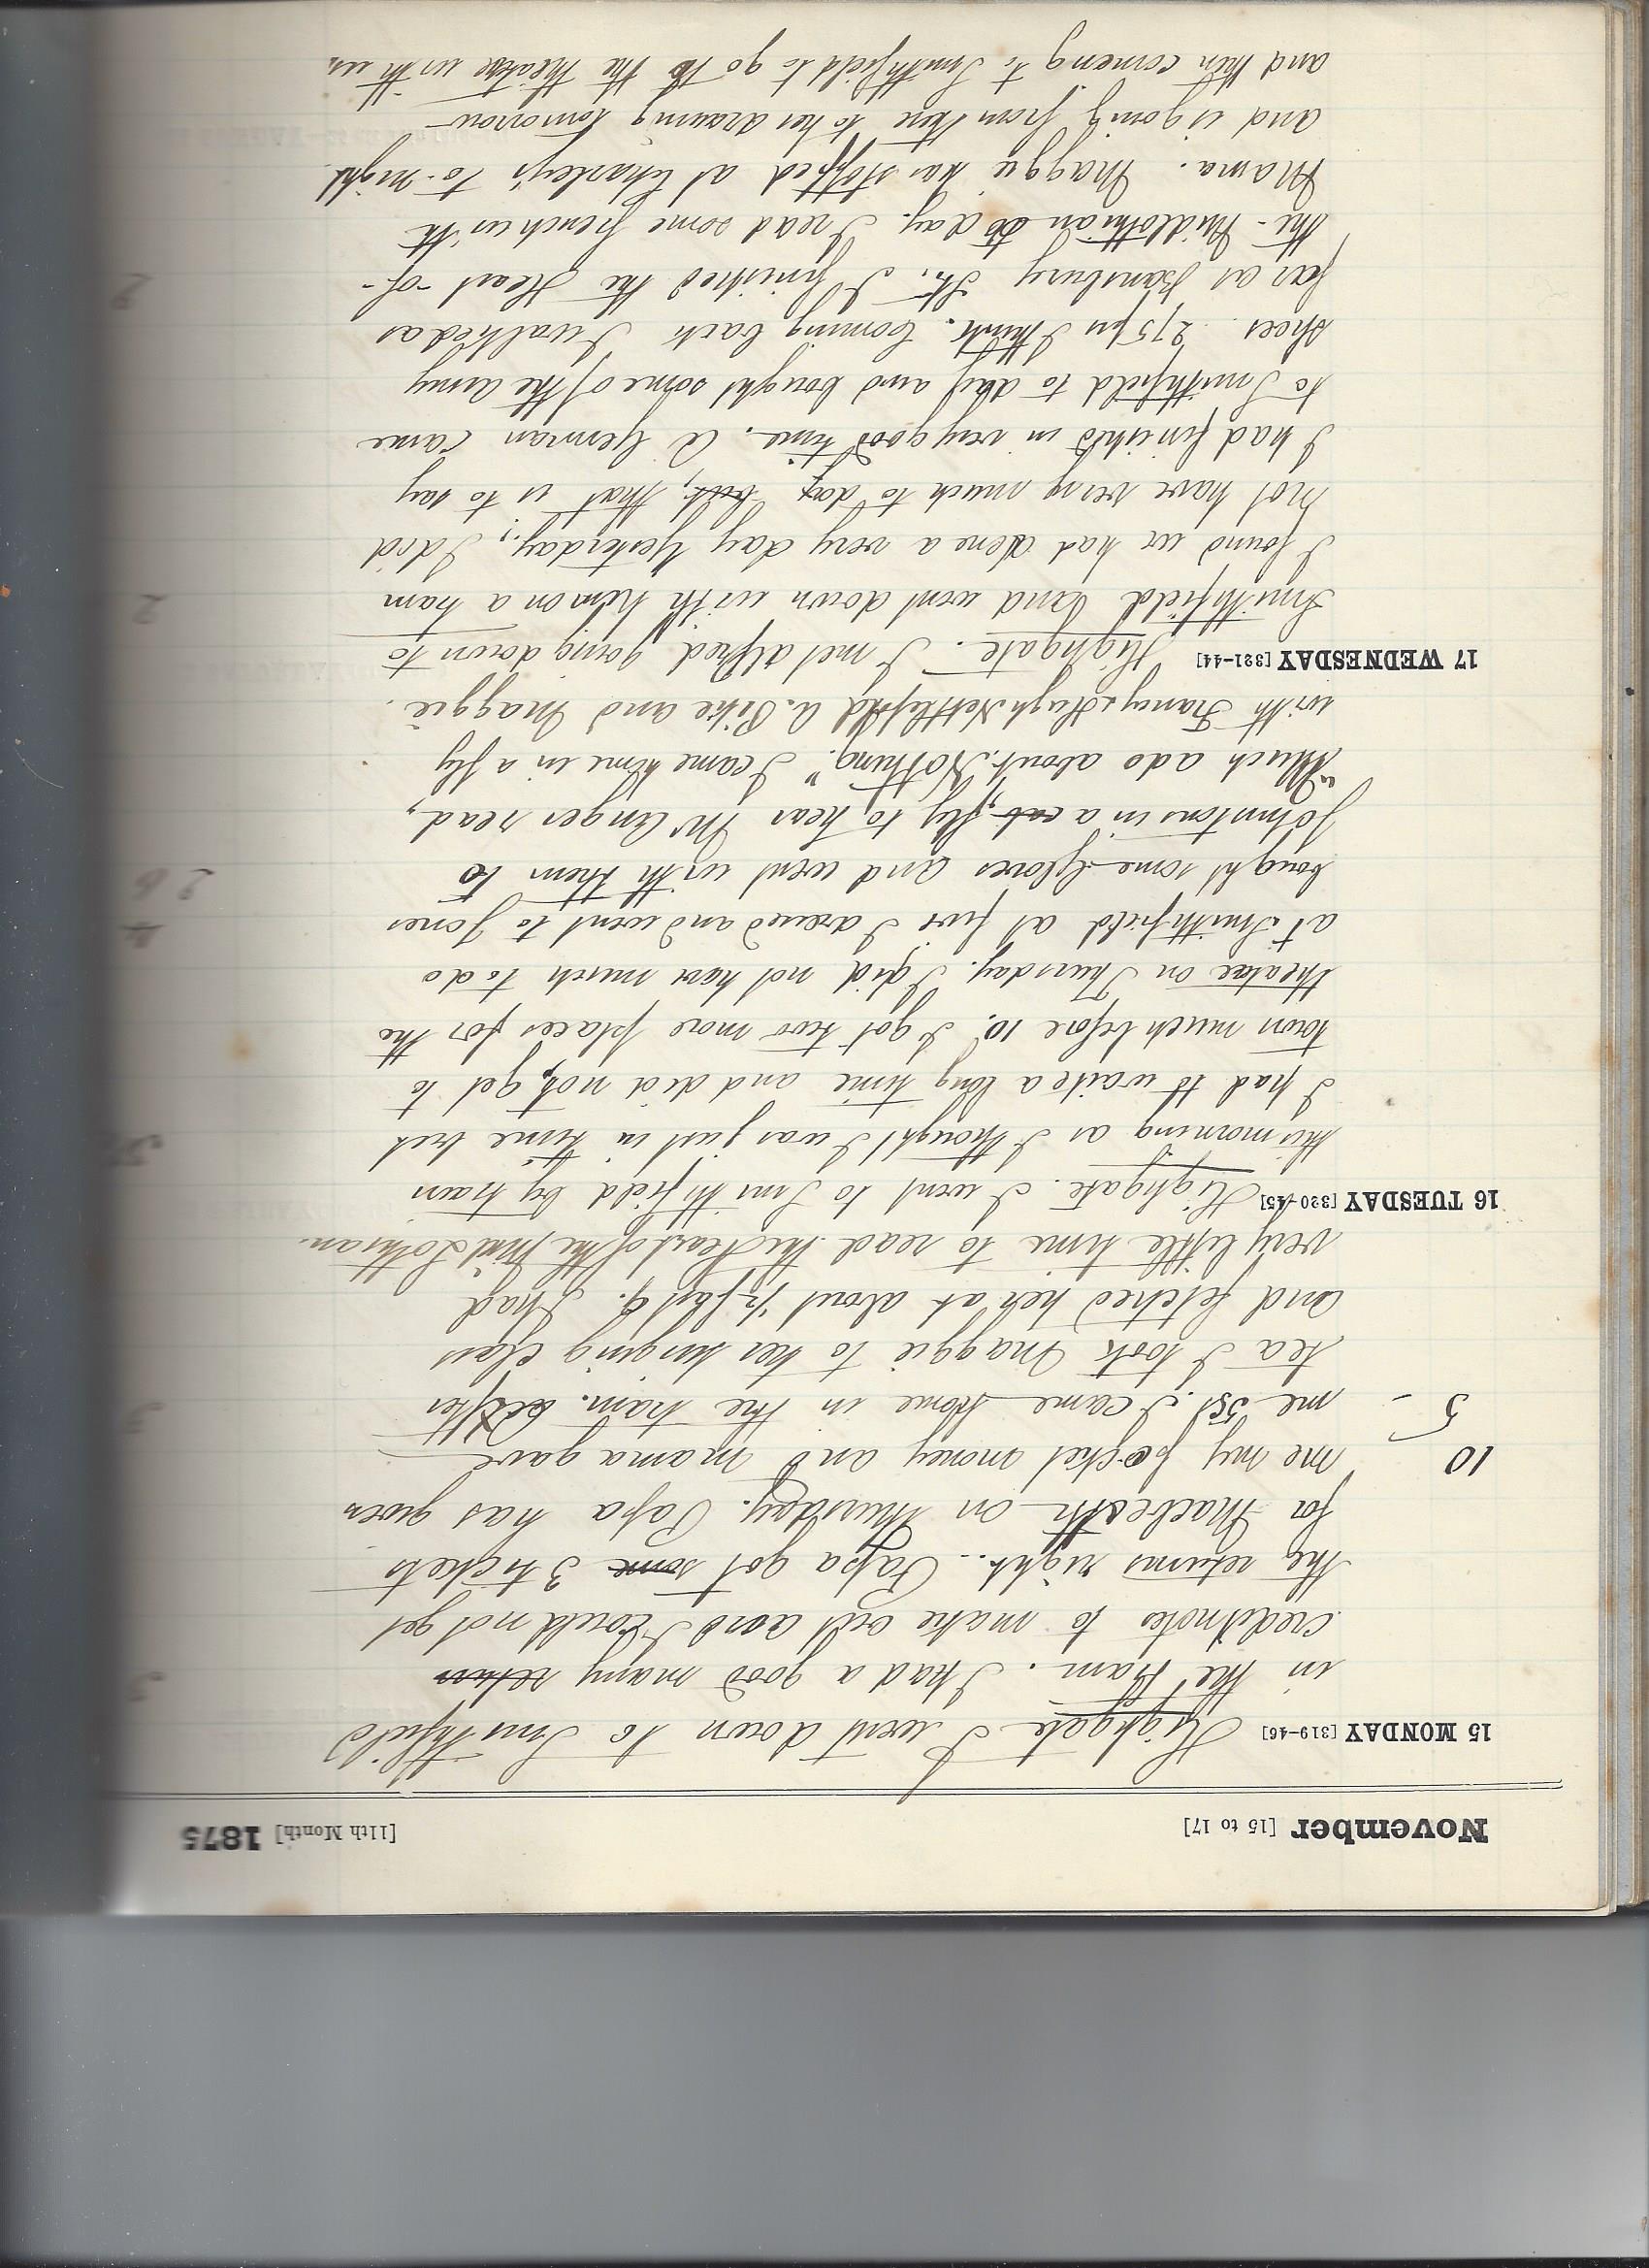 November [15 to 17] [11th Month] 1875
15 MONDAY [319-46] Highgate I went down to Smithfield
in the tram. I had a good many return
creditnotes to make out and I could not get
the returns right. Papa got some 3 tickets
for Macbeth on Thursday. Papa has given
10 me my pocket money and mama gave
5 - me 5s/. I came home in the tram. After
tea I took Maggie to her singing class
and fetched her at about 1/2 past 9. I had
very little time to read the Heart of the Mid Lothian.
16 TUESDAY [320-45] Highgate. I went to Smithfield by train
this morning as I thought I was just in time but
I had to waite a long time and did not get to
town much before 10. I got two more places for the
theatre on Thursday. I did not have much to do
at Smithfield at five I dressed and went to Jones 4
bought some gloves and went with them to 2 6
Johnstons in a cab fly to hear Mr Anger read,
"Much ado about Nothing." I came home in a fly
with Franny, Hugh Nettlefold A. Pike and Maggie.
17 WEDNESDAY [321-44] Highgate. I met alfred going down to
Smithfield and went down with him on a tram 2
I found we had done a very day Yesterday, I did
not have very much to day but, that is to say
I had finished in very good time. A German came
to Smithfield to day and bought some of the army
shoes 2/5 pr I think. Coming back I walked as
far as Barnsbury St. I finished the Heart-of- 2
the-Midlothian to day. I read some french with
Mama. Maggie has stopped at Charley's to-night
and is going from there to her drawing tomorrow
and then comeng to Smithfield to go to the theatre with us